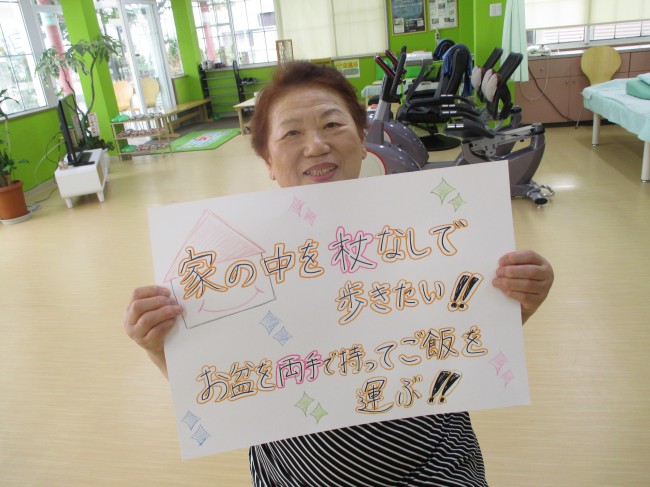 家の中を杖なしで
歩きたい!!
お盆を両手で持ってご飯を
運ぶ!!